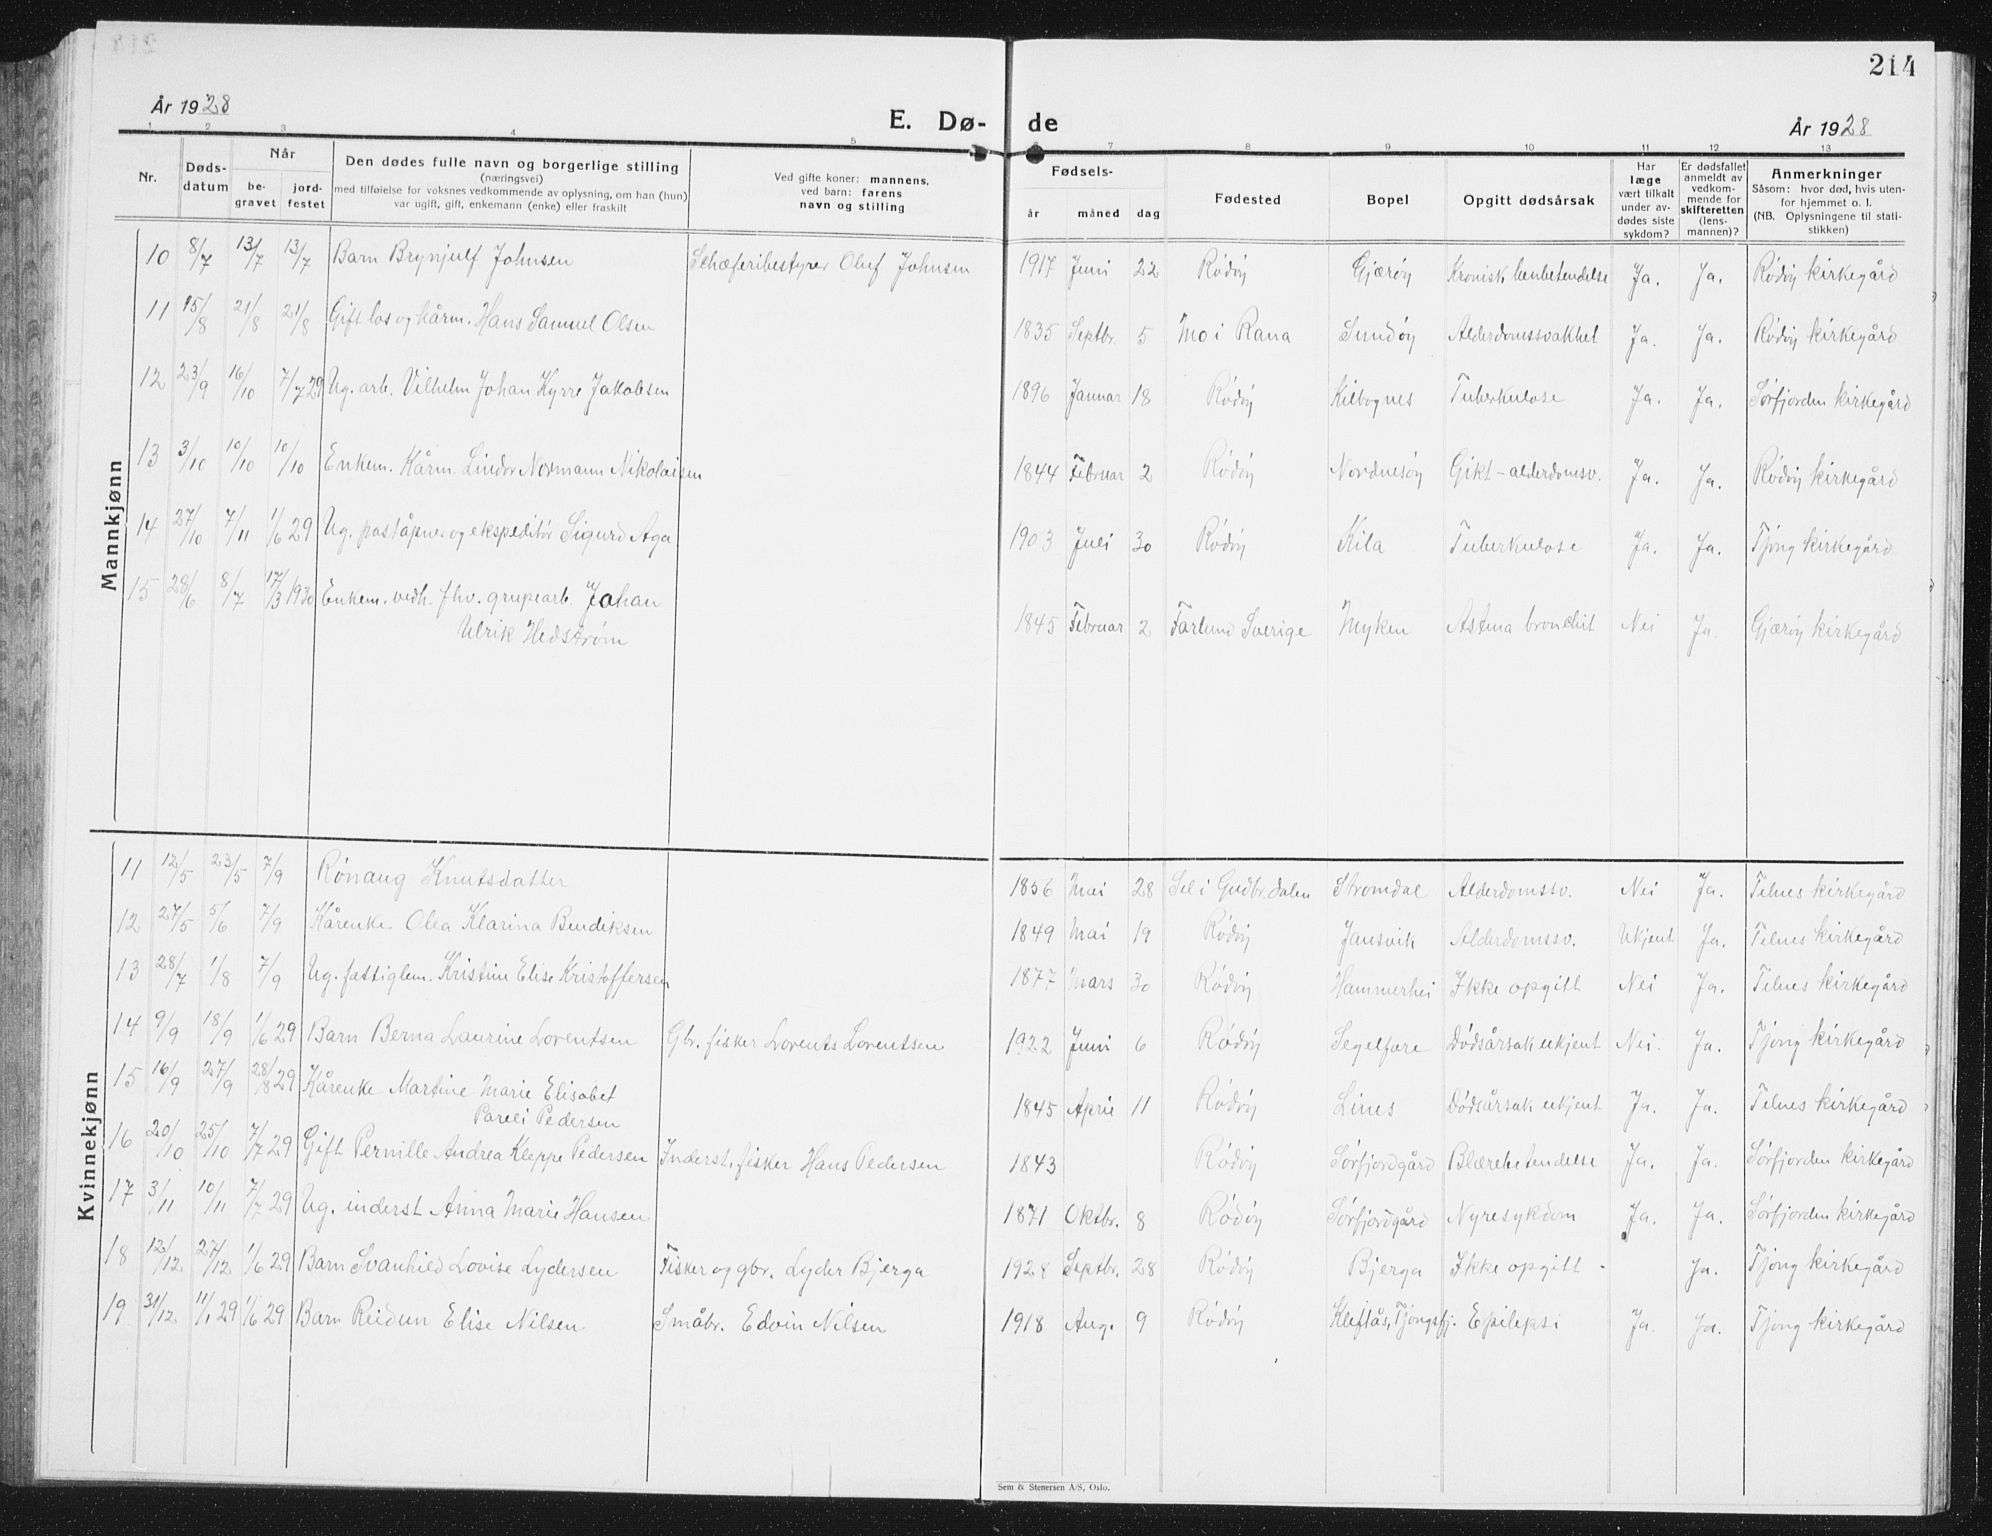 214
År 1928
E. Dø- de
År 1928
1 2 3 4 5 6 7 8 9 10 11 12 13
Nr.
Døds-
datum
Når
be-
gravet
jord-
festet
Den dødes fulle navn og borgerlige stilling
(næringsvei)
med tilføielse for voksnes vedkommende av oplysning, om han (hun)
var ugift, gift, enkemann (enke) eller fraskilt
Ved gifte koner: mannens,
ved barn: farens
navn og stilling
Fødsels-
år måned dag
Fødested
Bopel
Opgitt dødsårsak
Har
læge
vært tilkalt
under av-
dødes siste
sykdom?
Er dødsfallet
anmeldt av
vedkom-
mende for
skifteretten
(lens-
mannen)?
Anmerkninger
Såsom: hvor død, hvis uten-
for hjemmet o. l.
(NB. Oplysningene til stati-
stikken)
Mannkjønn
10 8/7 13/7 13/7 Barn Brynjulf Johnsen Schæferibestyrer Oluf Johnsen 1917 Juni 22 Rödöy Gjæröy Kronisk benbetendelse Ja. Ja. Rödöy kirkegård
11 15/8 21/8 21/8 Gift los og kårm. Hans Samuel Olsen 1835 Septbr. 5 Mo i Rana Sundöy Alderdomssvakhet Ja. Ja. Rödöy kirkegård
12 23/9 16/10 7/7 29 Ug. arb. Vilhelm Johan Kyrre Jakobsen 1896 Januar 18 Rödöy Kilbognes Tuberkulose Ja. Ja. Sörfjorden kirkegård
13 3/10 10/10 10/10 Enkem. Kårm. Lindor Normann Nikolaisen 1844 Februar 2 Rödöy Nordnesöy Gikt-alderdomsv. Ja. Ja. Rödöy kirkegård
14 27/10 7/11 1/6 29 Ug. poståpner og ekspeditör Sigurd Aga 1903 Juli 30 Rödöy Kila Tuberkulose Ja. Ja. Tjong kirkegård
15 28/6 8/7 17/3 1930 Enkem. vedh. fhv. grupearb. Johan
Ulrik Hedström 1845 Februar 2 Färlund Sverige Myken Astma bronchit Nei Ja. Gjæröy kirkegård
Kvinnekjønn
11 12/5 23/5 7/9 Rönaug Knutsdatter 1856 Mai 28 Sel i Gudbr.dalen Stromdal Alderdomssv. Nei Ja. Telnes kirkegård
12 27/5 5/6 7/9 Kårenke Olea Klarina Bendiksen 1849 Mai 19 Rödöy Jansvik Alderdomssv. Ukjent Ja. Telnes kirkegård
13 28/7 1/8 7/9 Ug. fattiglem. Kristine Elise Kristoffersen 1877 Mars 30 Rödöy Hammerhei Ikke opgitt Nei Ja. Telnes kirkegård
14 9/9 18/9 1/6 29 Barn Berna Laurine Lorentsen Gbr. fisker Lorents Lorentsen 1922 Juni 6 Rödöy Segelföre Dödsårsak ukjent Nei. Ja. Tjong kirkegård
15 16/9 27/9 28/8 29 Kårenke Martine Marie Elisabet
Pareli Pedersen 1845 April 11 Rödöy Lines Dödsårsak ukjent Ja. Ja. Telnes kirkegård
16 20/10 25/10 7/7 29 Gift Pernille Andrea Kleppe Pedersen Inderst, fisker Hans Pedersen 1843 Rödöy Sörfjordgård Blærebetendelse Ja. Ja. Sörfjorden kirkegård
17 3/11 10/11 7/7 29 Ug. inderst Anna Marie Hansen 1871 Oktbr. 8 Rödöy Sörfjordgård Nyresykdom Ja. Ja. Sörfjorden kirkegård
18 12/12 27/12 1/6 29 Barn Svanhild Lovise Lydersen Fisker og gbr. Lyder Bjerga 1928 Septbr. 28 Rödöy Bjerga Ikke opgitt - Ja. Tjong kirkegård
19 31/12 11/1 29 1/6 29 Barn Reidun Elise Nilsen Småbr. Edvin Nilsen 1918 Aug. 9 Rödöy Kleftås, Tjongsfj. Epilepsi Ja. Ja. Tjong kirkegård
Sem & Stenersen A/S, Oslo.